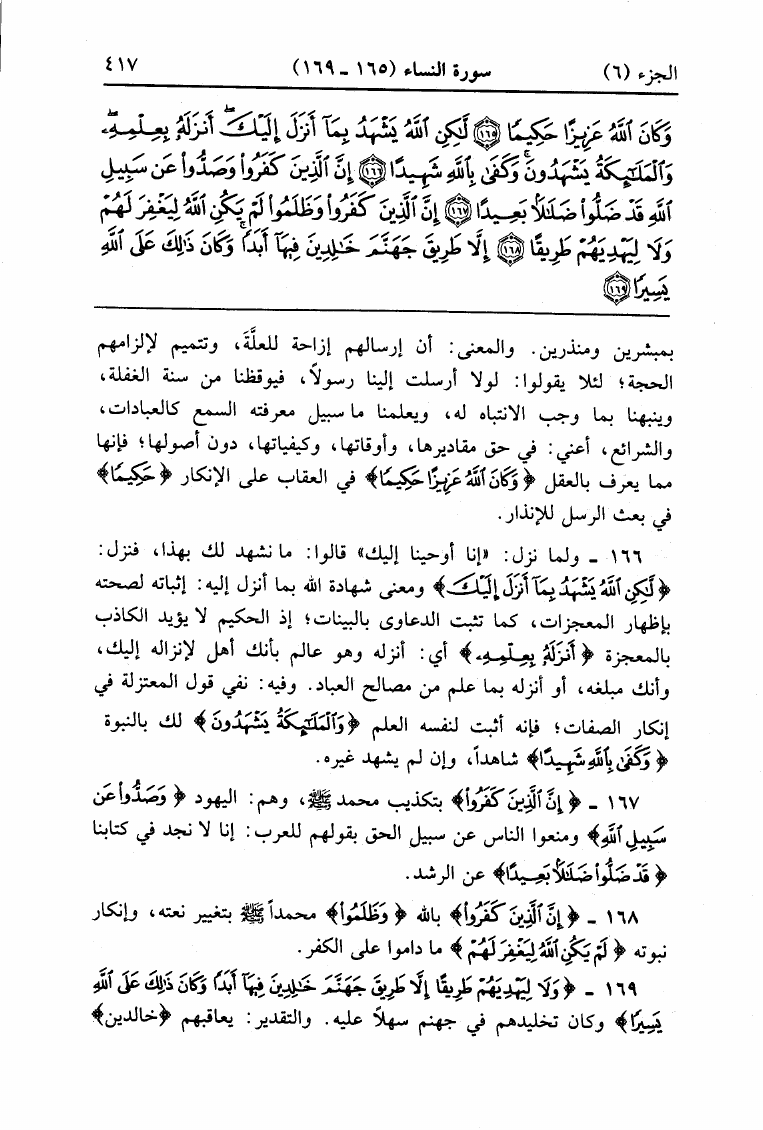 الجزء (٦) سورة النساء (١٦٥ ـ ١٦٩) ٤١٧
وَكَانَ ٱللَّهُ عَزِيزًا حَكِيمًا ﴿١٦٥﴾ لَّٰكِنِ ٱللَّهُ يَشْهَدُ بِمَآ أَنزَلَ إِلَيْكَ ۖ أَنزَلَهُۥ بِعِلْمِهِۦ ۖ
وَٱلْمَلَٰٓئِكَةُ يَشْهَدُونَ ۚ وَكَفَىٰ بِٱللَّهِ شَهِيدًا ﴿١٦٦﴾ إِنَّ ٱلَّذِينَ كَفَرُوا۟ وَصَدُّوا۟ عَن سَبِيلِ
ٱللَّهِ قَدْ ضَلُّوا۟ ضَلَٰلًۢا بَعِيدًا ﴿١٦٧﴾ إِنَّ ٱلَّذِينَ كَفَرُوا۟ وَظَلَمُوا۟ لَمْ يَكُنِ ٱللَّهُ لِيَغْفِرَ لَهُمْ
وَلَا لِيَهْدِيَهُمْ طَرِيقًا ﴿١٦٨﴾ إِلَّا طَرِيقَ جَهَنَّمَ خَٰلِدِينَ فِيهَآ أَبَدًا ۚ وَكَانَ ذَٰلِكَ عَلَى ٱللَّهِ
يَسِيرًا ﴿١٦٩﴾
بمبشرين ومنذرين. والمعنى: أن إرسالهم إزاحة للعلَّة، وتتميم لإلزامهم
الحجة؛ لئلا يقولوا: لولا أرسلت إلينا رسولاً، فيوقظنا من سنة الغفلة،
وينبهنا بما وجب الانتباه له، ويعلمنا ما سبيل معرفته السمع كالعبادات،
والشرائع، أعني: في حق مقاديرها، وأوقاتها، وكيفياتها، دون أصولها؛ فإنها
مما يعرف بالعقل ﴿وَكَانَ ٱللَّهُ عَزِيزًا حَكِيمًا﴾ في العقاب على الإنكار ﴿حَكِيمًا﴾
في بعث الرسل للإنذار.
١٦٦ ـ ولما نزل: «إنا أوحينا إليك» قالوا: ما نشهد لك بهذا، فنزل:
﴿لَّٰكِنِ ٱللَّهُ يَشْهَدُ بِمَآ أَنزَلَ إِلَيْكَ﴾ ومعنى شهادة الله بما أنزل إليه: إثباته لصحته
بإظهار المعجزات، كما تثبت الدعاوى بالبينات؛ إذ الحكيم لا يؤيد الكاذب
بالمعجزة ﴿أَنزَلَهُۥ بِعِلْمِهِۦ﴾ أي: أنزله وهو عالم بأنك أهل لإنزاله إليك،
وأنك مبلغه، أو أنزله بما علم من مصالح العباد. وفيه: نفي قول المعتزلة في
إنكار الصفات؛ فإنه أثبت لنفسه العلم ﴿وَٱلْمَلَٰٓئِكَةُ يَشْهَدُونَ﴾ لك بالنبوة
﴿وَكَفَىٰ بِٱللَّهِ شَهِيدًا﴾ شاهداً، وإن لم يشهد غيره.
١٦٧ ـ ﴿إِنَّ ٱلَّذِينَ كَفَرُوا۟﴾ بتكذيب محمد ﷺ، وهم: اليهود ﴿وَصَدُّوا۟ عَن
سَبِيلِ ٱللَّهِ﴾ ومنعوا الناس عن سبيل الحق بقولهم للعرب: إنا لا نجد في كتابنا
﴿قَدْ ضَلُّوا۟ ضَلَٰلًۢا بَعِيدًا﴾ عن الرشد.
١٦٨ ـ ﴿إِنَّ ٱلَّذِينَ كَفَرُوا۟﴾ بالله ﴿وَظَلَمُوا۟﴾ محمداً ﷺ بتغيير نعته، وإنكار
نبوته ﴿لَمْ يَكُنِ ٱللَّهُ لِيَغْفِرَ لَهُمْ﴾ ما داموا على الكفر.
١٦٩ ـ ﴿وَلَا لِيَهْدِيَهُمْ طَرِيقًا إِلَّا طَرِيقَ جَهَنَّمَ خَٰلِدِينَ فِيهَآ أَبَدًا وَكَانَ ذَٰلِكَ عَلَى ٱللَّهِ
يَسِيرًا﴾ وكان تخليدهم في جهنم سهلاً عليه. والتقدير: يعاقبهم ﴿خالدين﴾